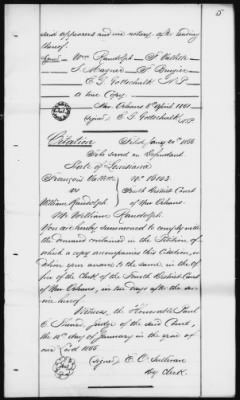 5
said appearers and me notary after reading
thereof.
Signed Wm Randolph F Vallette
J. Magner F. Bruyier
E. G. Gottschalk N.P
A true Copy
New Orleans 8th April 1861.
Signed E. G. Gottschalk N.P.
Citation Filed Jany 20th 1866
To be served on Defendant
State of Louisiana
François Vallette No 16103
vs Fourth District Court
William Randolph of New Orleans.
Mr. William Randolph.
You are hereby summoned to comply with
the demand contained in the Petition of
which a copy accompanies this Citation, or
deliver your answer to the same in the Of
fice of the Clerk of the Fourth District Court
of New Orleans, in ten days after the ser
vice hereof.
Witness, the Honorable Paul
E. Judge of the said Court,
the 18th day of January in the year of
our Lord 1866
(signed) E. O. Sullivan
Dy Clerk.